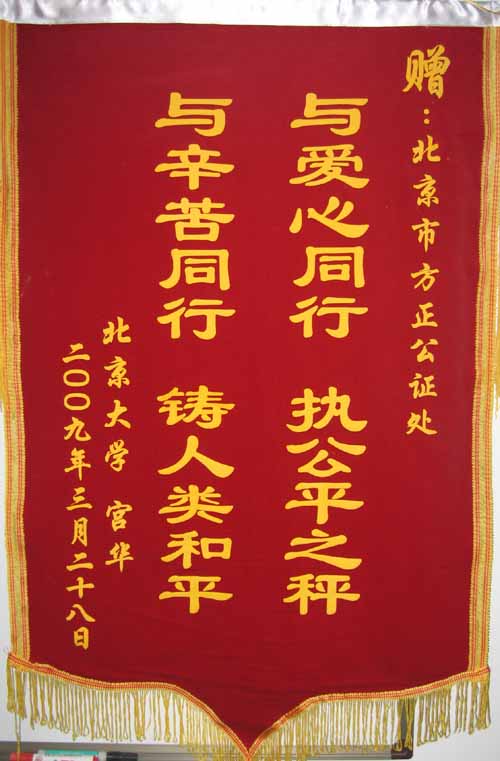 赠：北京市方正公证处
与爱心同行 执公平之秤
与辛苦同行 铸人类和平
北京大学 宫华
二〇〇九年三月二十八日